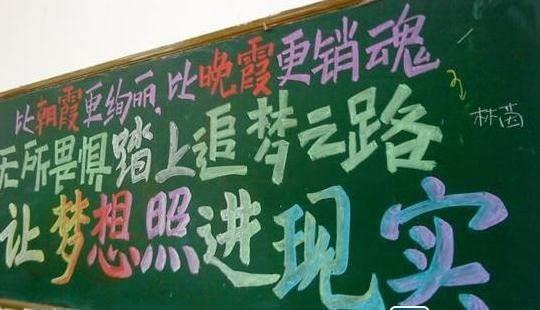 比朝霞更绚丽、比晚霞更销魂
无所畏惧踏上追梦之路
让梦想照进现实
林茵